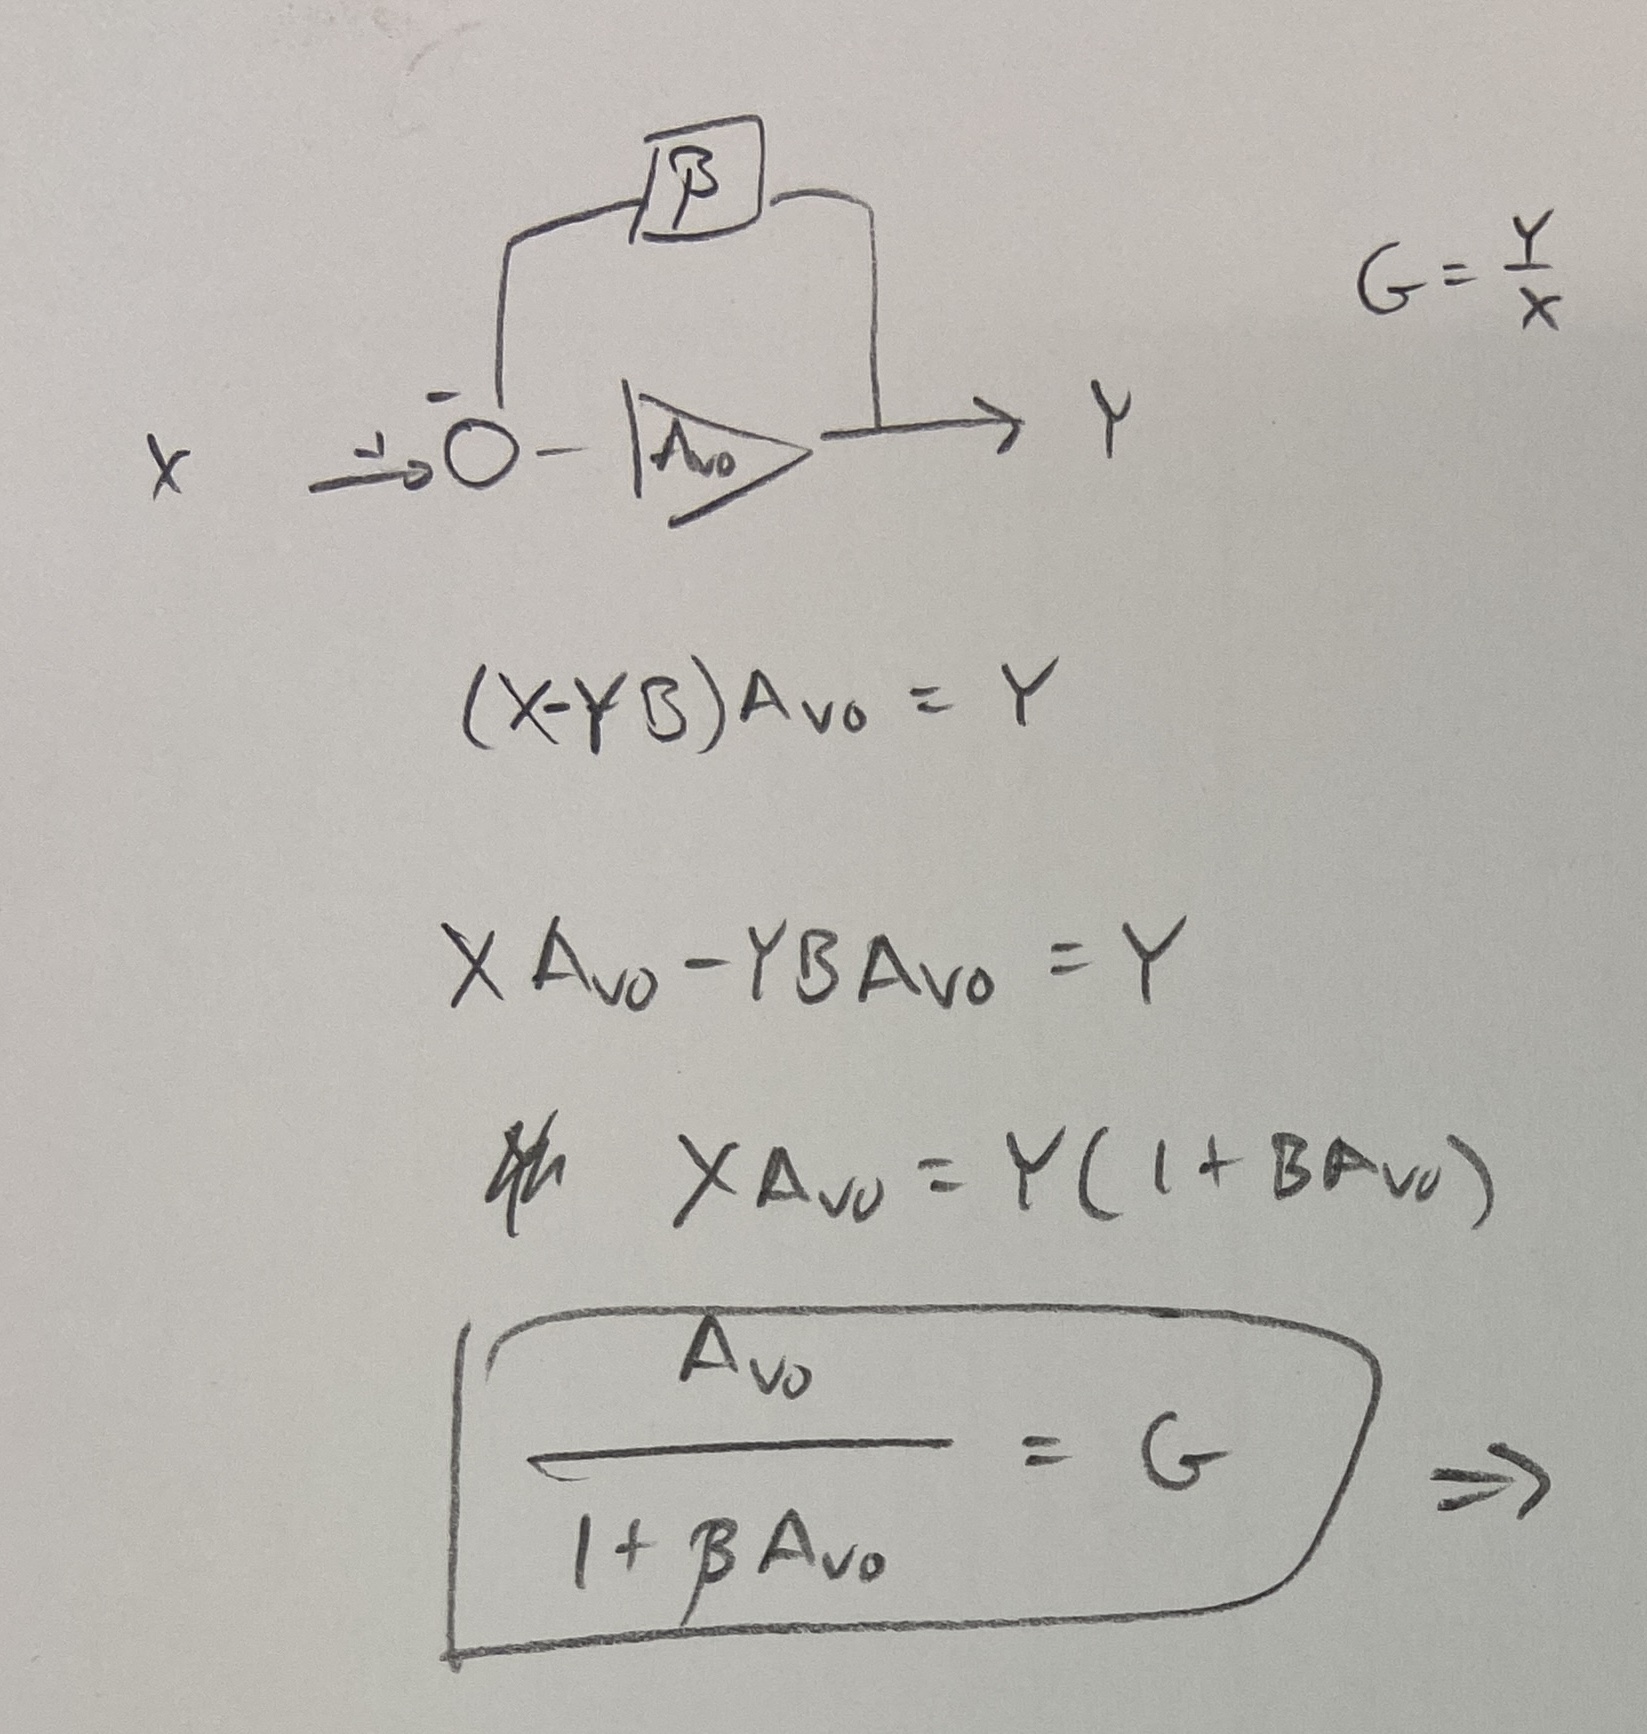 β
G = Y/X
X + - Avo Y
(X-YB)Avo = Y
XAvo - YBAvo = Y
XAvo = Y(1+BAvo)
Avo
———— = G ⇒
1+βAvo